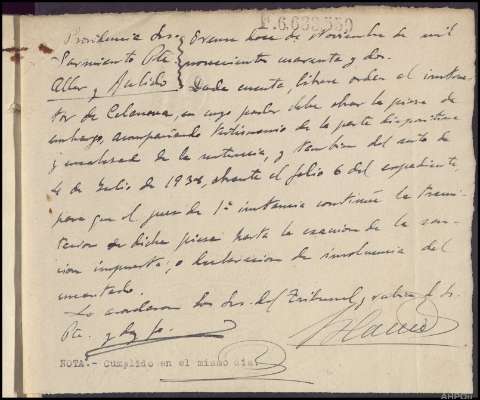 F.6.683,550
Providencia Sres. } Orense doce de Noviembre de mil
Sarmiento Pte } novecientos cuarenta y dos.
Aller y Pulido } Dada cuenta, librese orden al instruc-
tor de Celanova, en cuyo poder debe obrar la pieza de
embargo, acompañando testimonio de la parte dispositiva
y encabezado de la sentencia, y tambien del auto de
4 de Julio de 1938, obrante al folio 6 del expediente,
para que el juez de 1ª instancia continúe la trami-
tacion de dicha pieza hasta la exaccion de la san-
cion impuesta, o declaracion de insolvencia del
encartado.
Lo acordaron los Sres. del Tribunal y rubrica el Sr.
Pte. y doy fe.
NOTA.- Cumplido en el mismo dia.
AHPOu